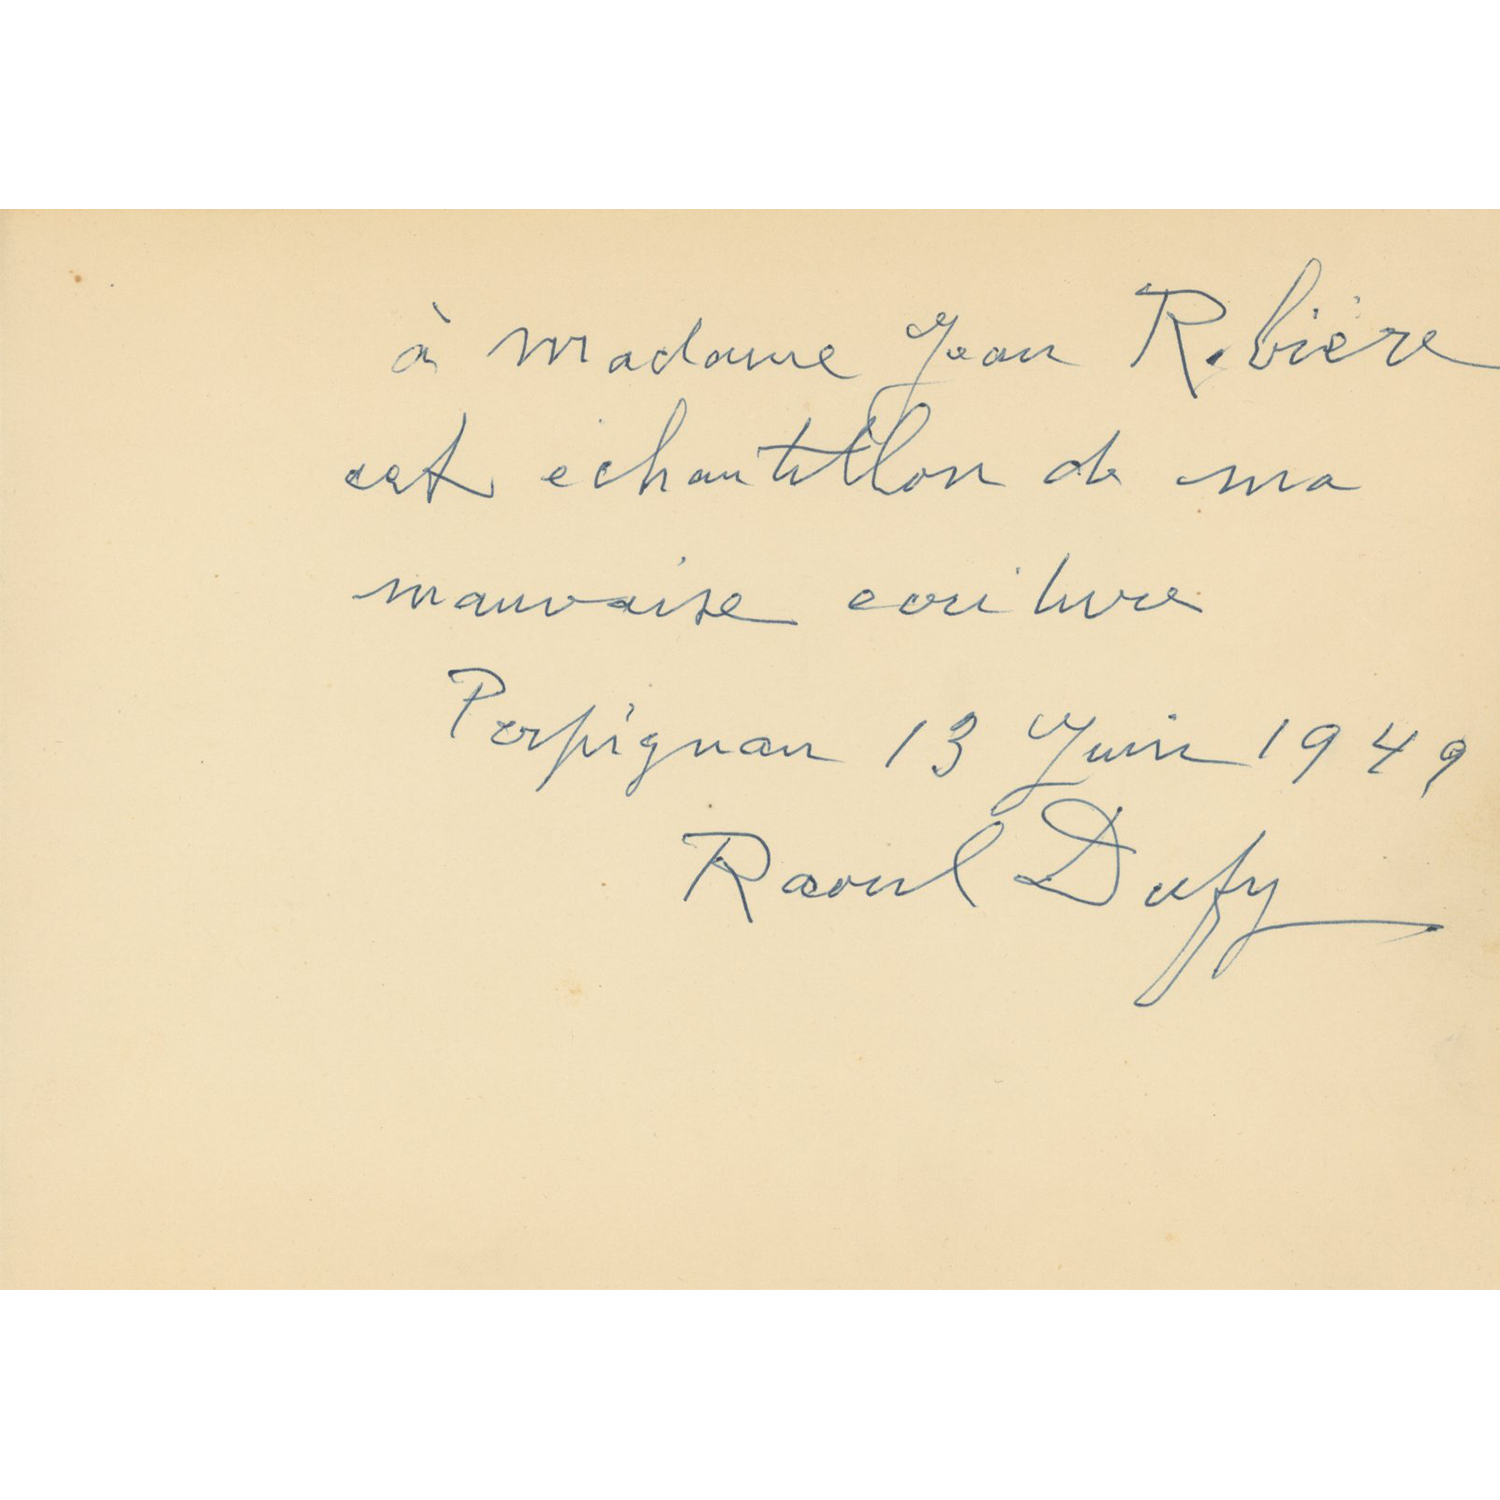 à madame Jean Ribière
cet échantillon de ma
mauvaise ecriture
Perpignan 13 Juin 1949
Raoul Dufy